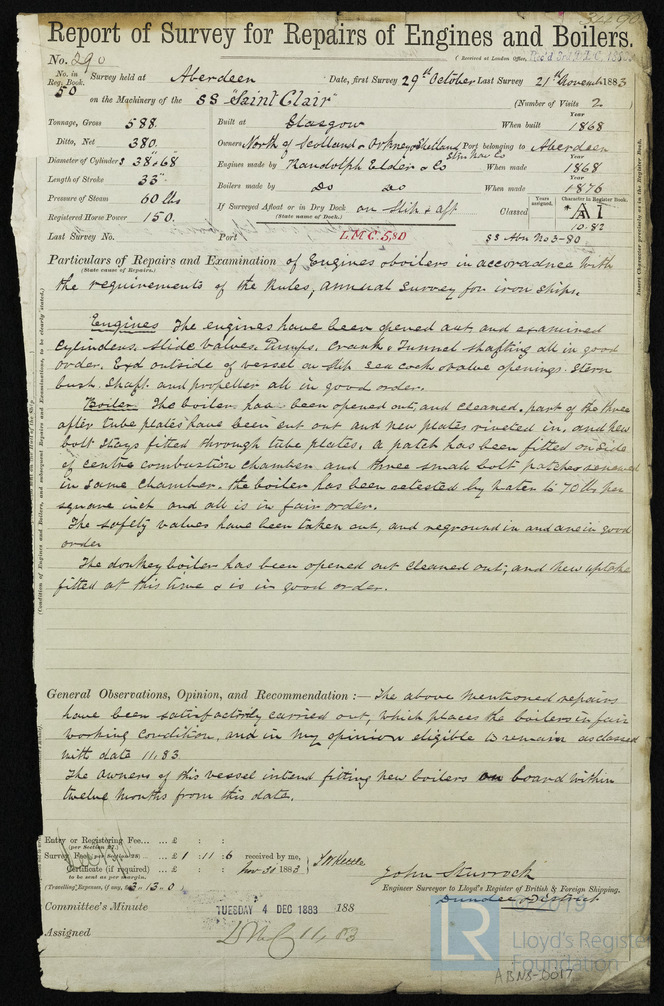 3490
Report of Survey for Repairs of Engines and Boilers.
No. 290
(Received at London Office,
No. in Reg. Book. 50
Survey held at Aberdeen Date, first Survey 29th October Last Survey 21st November 1883
on the Machinery of the SS "Saint Clair" (Number of Visits 2)
Tonnage, Gross 588.
Ditto, Net 380.
Diameter of Cylinders 38" & 68
Length of Stroke 33"
Pressure of Steam 60 lbs
Registered Horse Power 150.
Built at Glasgow When built Year 1868
Owners North of Scotland & Orkney & Shetland Stm Nav Co Port belonging to Aberdeen
Engines made by Randolph Elder & Co When made Year 1868
Boilers made by Do Do When made Year 1876
If Surveyed Afloat or in Dry Dock on Slip & aft
(State name of Dock.)
Classed Years assigned. Character in Register Book. A1
10.82
Last Survey No. Port L.M.C. 5,80 SS Abn No 3-80
Particulars of Repairs and Examination of Engines & boilers in accordance with
(State cause of Repairs.)
the requirements of the Rules, annual survey for iron ships.
Engines The engines have been opened out and examined
Cylinders. Slide valves. Pumps. Crank & Tunnel shafting all in good
order. Exd outside of vessel on slip sea cock & valve openings. Stern
bush. Shaft. and propeller all in good order.
Boiler The boiler has been opened out, and cleaned. part of the three
after tube plates have been cut out and new plates riveted in, and new
bolt stays fitted through tube plates. a patch has been fitted on side
of centre combustion chamber and three small bolt patches renewed
in same chamber. the boiler has been retested by water to 70 lbs per
square inch and all is in fair order.
The safety valves have been taken out, and reground in and are in good
order
The donkey boiler has been opened out cleaned out; and new uptake
fitted at this time & is in good order.
General Observations, Opinion, and Recommendation:— The above mentioned repairs
have been satisfactorily carried out, which places the boilers in fair
working condition, and in my opinion eligible to remain as classed
with date 11.83.
The owners of this vessel intend fitting new boilers on board within
twelve months from this date.
Entry or Registering Fee... ... £ : :
(per Section 27.)
Survey Fee (per Section 28) ... £1 : 11 : 6 received by me,
Certificate (if required) ... £ : : Nov 30 1883
to be sent as per margin.
(Travelling Expenses, if any, £3 . 13 . 0)
John Sturrock
Engineer Surveyor to Lloyd's Register of British & Foreign Shipping.
Dundee District
Committee's Minute TUESDAY 4 DEC 1883 188
Assigned LMC 11.83
© 2019
LR
Lloyd's Register
Foundation
ABN8-0017
Insert Character precisely as in the Register Book.
(Condition of Engines and Boilers, and subsequent Repairs and Examinations, to be clearly stated.)